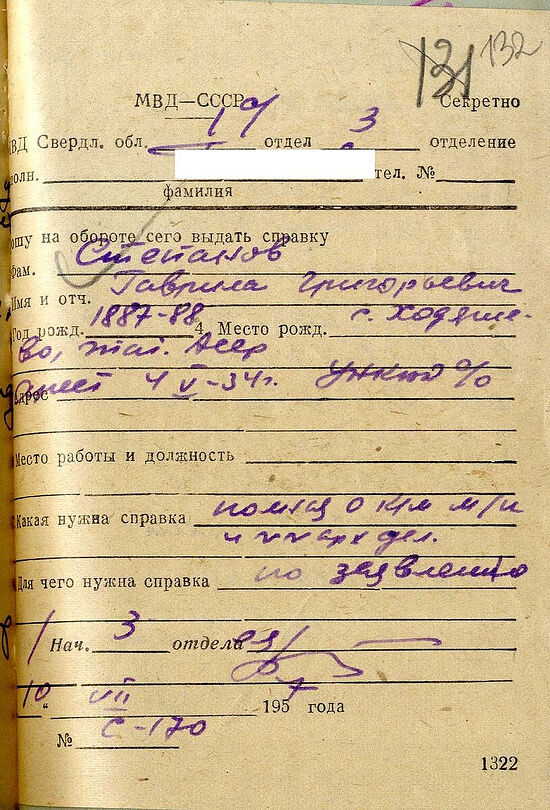 131 132
МВД—СССР
Секретно
ВД Свердл. обл. 1 отдел 3 отделение
олн. тел. №
фамилия
ошу на обороте сего выдать справку
Фам. Степанов
Имя и отч. Гаврила Григорьевич
Год рожд. 1887-88 Место рожд. с. Ходяше-
во, тат. Асср
Адрес арест 4 V-34г. УНКВД
Место работы и должность
Какая нужна справка
и арх дел.
Для чего нужна справка по заявлению
Нач. 3 отдела
10 " VII 1957 года
№ с-170
1322